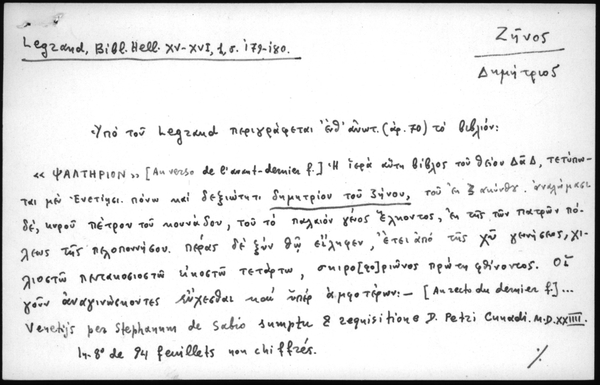 Legrand, Bibl. Hell. XV-XVI, 1, σ. 179-180.
Ζῆνος
Δημήτριος
Ὑπὸ τοῦ Legrand περιγράφεται ἐνθ' ἀνωτ. (ἀρ. 70) τὸ βιβλίον:
«ΨΑΛΤΗΡΙΟΝ» [Au verso de l'avant-dernier f.] Ἡ ἱερὰ αὕτη βίβλος τοῦ θείου Δᾱδ, τετύπω-
ται μὲν Ἐνετίησι. πόνω καὶ δεξιώτητι δημητρίου τοῦ ζήνου, τοῦ ἐκ ζακύνθου. ἀναλώμασι
δὲ, κυροῦ πέτρου τοῦ κουνάδου, τοῦ τὸ παλαιὸν γένος ἕλκοντος, ἐκ τῆς τῶν πατρῶν πό-
λεως τῆς πελοποννήσου. πέρας δὲ ξὺν θῶ εἴληφεν, ἔτει ἀπὸ τῆς χῦ γεννήσεως, χι-
λιοστῶ πεντακοσιοστῶ εἰκοστῶ τετάρτω, σκιρο[φο]ριῶνος πρώτη φθίνοντος. Οἱ
γοῦν ἀναγινώσκοντες εὔχεσθαι καὶ ὑπὲρ ἀμφοτέρων:— [Au recto du dernier f.]...
Venetijs per Stephanum de Sabio sumptu & requisitione D. Petri Cunadi. M.D.XXIIII.
In-8º de 94 feuillets non chiffrés.
./.